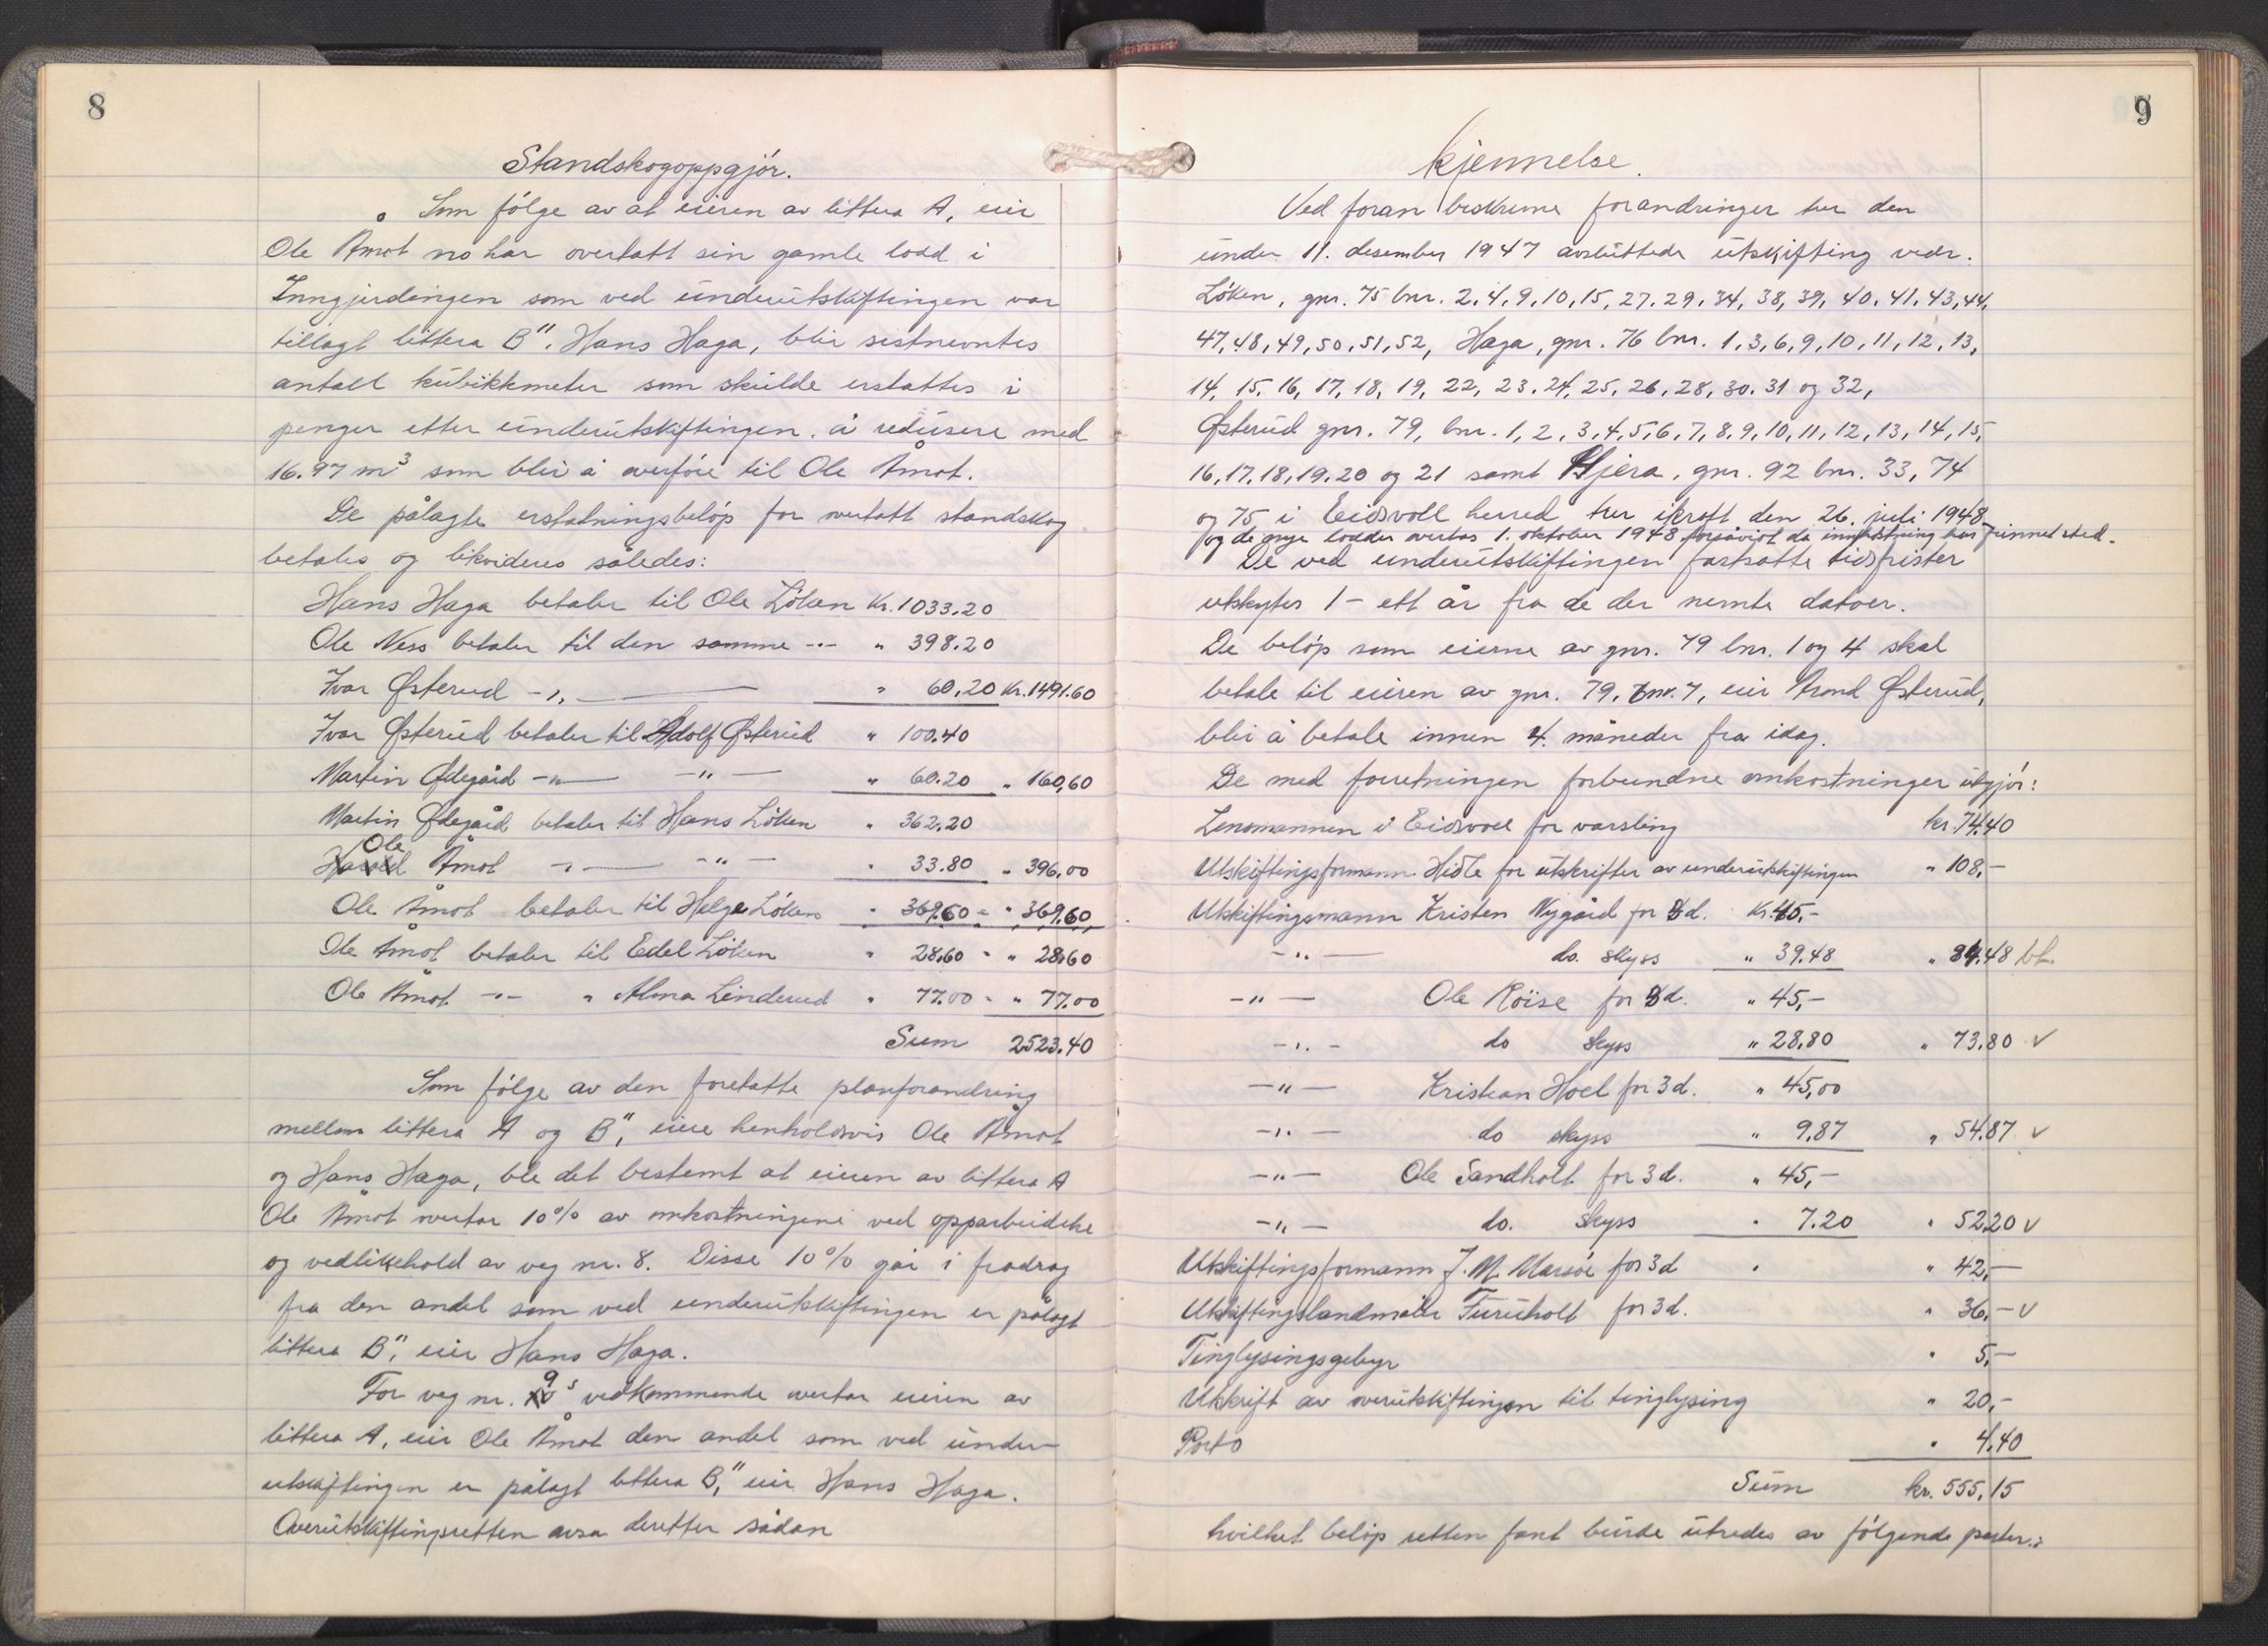 8
Standskogoppgjør.
Som følge av at eieren av littera A, eier
Ole Åmot no har overtatt sin gamle lodd i
Inngjerdingen som ved underutskiftingen var
tillagt littera B", Hans Haga, blir sistnevntes
antall kubikkmeter som skulde erstattes i
penger etter underutskiftingen, å redusere med
16.97 m³ som blir å overføre til Ole Åmot.
De pålagte erstatningsbeløp for overtatt standskog
betales og likvideres således:
Hans Haga betaler til Ole Løken Kr. 1033.20
Ole Ness betaler til den samme -"- " 398.20
Ivar Østerud -"- " 60,20 Kr. 1491.60
Ivar Østerud betaler til Adolf Østerud " 100.40
Martin Ødegård -"- -"- " 60.20 " 160,60
Martin Ødegård betaler til Hans Løken " 362.20
Ole Åmot -"- -"- " 33.80 " 396,00
Ole Åmot betaler til Helge Løken " 369.60 = " 369,60
Ole Åmot betaler til Edel Løken " 28,60 - " 28,60
Ole Åmot -"- " Alma Linderud " 77.00 - " 77.00
Sum 2523.40
Som følge av den foretatte planforandring
mellom littera A og B", eiere henholdsvis Ole Åmot
og Hans Haga, ble det bestemt at eieren av littera A
Ole Åmot overtar 10% av omkostningene ved opparbeidelse
og vedlikehold av veg nr. 8. Disse 10% går i fradrag
fra den andel som ved underutskiftingen er pålagt
littera B", eier Hans Haga.
For veg nr. 9s vedkommende overtar eieren av
littera A, eier Ole Åmot den andel som ved under-
utskiftingen er pålagt littera B", eier Hans Haga.
Overutskiftingsretten avsa deretter sådan
9
kjennelse.
Ved foran beskrevne forandringer trer den
under 11. desember 1947 avsluttede utskifting vedr.
Løken, gnr. 75 bnr. 2, 4, 9, 10, 15, 27, 29, 34, 38, 39, 40, 41, 43, 44,
47, 48, 49, 50, 51, 52, Haga, gnr. 76 bnr. 1, 3, 6, 9, 10, 11, 12, 13,
14, 15, 16, 17, 18, 19, 22, 23, 24, 25, 26, 28, 30, 31 og 32,
Østerud gnr. 79, bnr. 1, 2, 3, 4, 5, 6, 7, 8, 9, 10, 11, 12, 13, 14, 15,
16, 17, 18, 19, 20 og 21 samt Hjera, gnr. 92 bnr. 33, 74
og 75 i Eidsvoll herred trer ikraft den 26. juli 1948
og de nye lodder overtas 1. oktober 1948 forsåvidt da innhøstning har funnet sted.
De ved underutskiftingen fastsatte tidsfrister
utskytes 1 - ett år fra de der nevnte datoer.
De beløp som eierne av gnr. 79 bnr. 1 og 4 skal
betale til eieren av gnr. 79, bnr. 7, eier Trond Østerud,
blir å betale innen 4. måneder fra idag.
De med forretningen forbundne omkostninger utgjør:
Lensmannen i Eidsvoll for varsling kr. 74.40
Utskiftingsformann Hidle for utskrifter av underutskiftingen " 108,-
Utskiftingsmann Kristen Nygård for 3 d. Kr. 45,-
-"- do. skyss " 39.48 " 84.48 bt.
-"- Ole Röise for 3 d. " 45,-
-"- do skyss " 28,80 " 73,80 v
-"- Kristian Hoel for 3 d. " 45,00
-"- do skyss " 9,87 " 54.87 v
-"- Ole Sandholt for 3 d. " 45,-
-"- do. skyss " 7.20 " 52.20 v
Utskiftingsformann J. M. for 3 d " " 42,-
Utskiftingslandmåler Furuholt for 3 d. " 36,- v
Tinglysingsgebyr " 5,-
Utskrift av overutskiftingen til tinglysing " 20,-
Porto " 4,40
Sum kr. 555,15
hvilket beløp retten fant burde utredes av følgende parter: